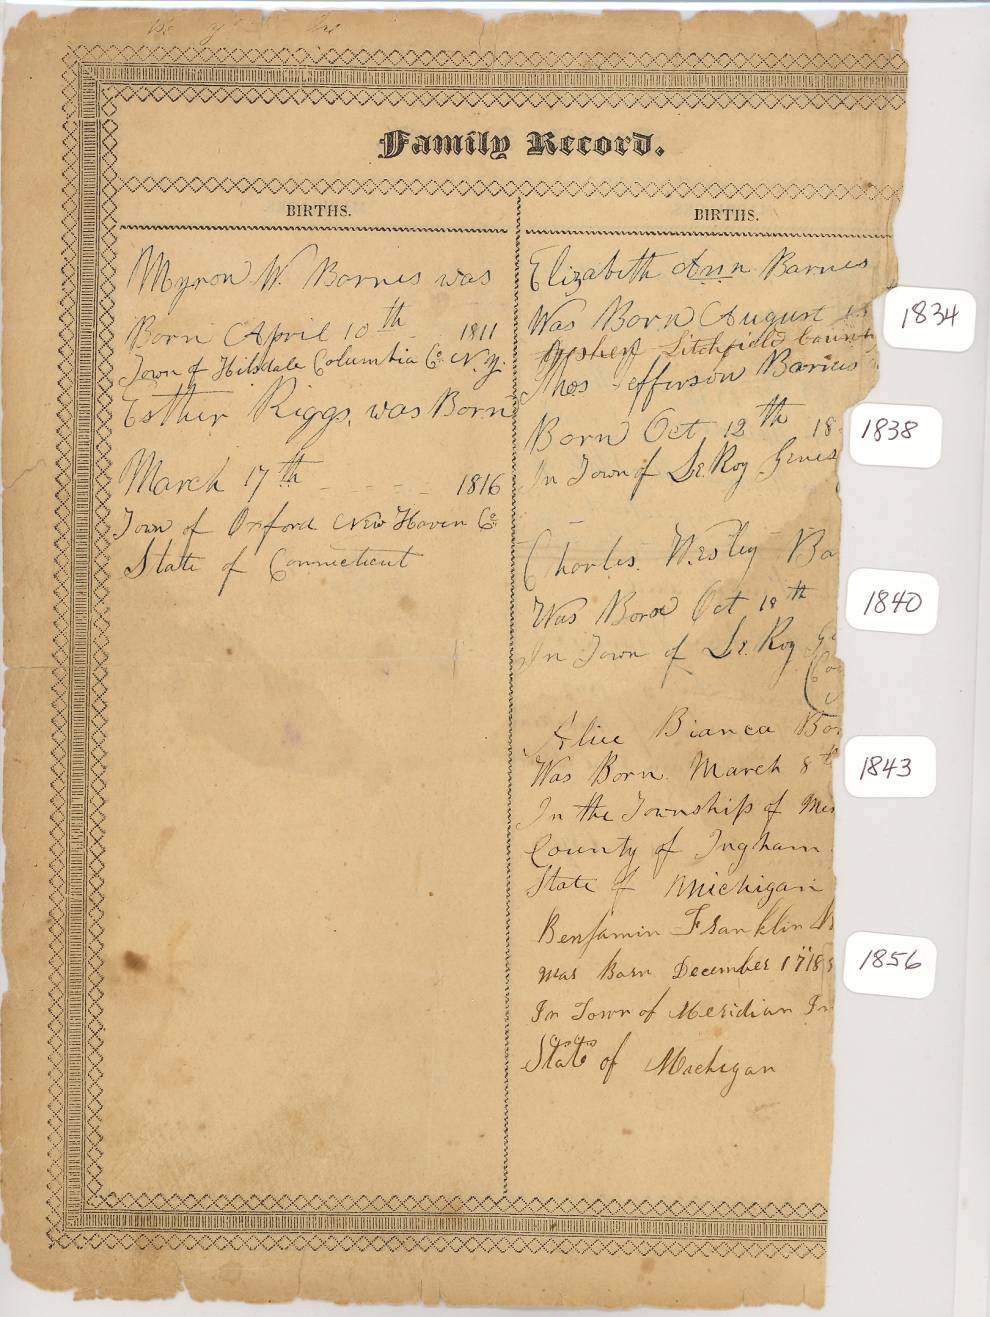 Family Record.
BIRTHS.
Myron W. Barnes was
Born April 10th 1811
Town of Hilsdale Columbia Co N.Y.
Esther Riggs, was Born
March 17th - - - - 1816
Town of Oxford New Haven Co
State of Connecticut
BIRTHS.
Elizabeth Ann Barnes
Was Born August
Litchfield Count
Thos Jefferson Barnes
Born Oct 12th 18
In Town of Le Roy Genes
Charles Wesley Ba
Was Born Oct 18th
In Town of Le Roy Ge
Co
Alice Bianca Bar
Was Born March 8t
In the Township of Mer
County of Ingham
State of Michigan
Benjamin Franklin
was Born December 17 18
In Town of Meridian In
State of Michigan
1834
1838
1840
1843
1856